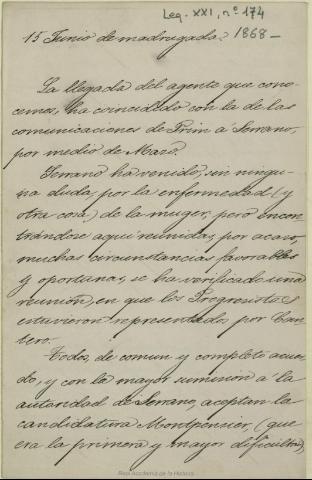 Leg. XXI, nº 174
15 Junio de madrugada. 1868—
La llegada del agente que cono-
cemos, ha coincidido con la de las
comunicaciones de Prim á Serrano,
por medio de Mazo.
Serrano ha venido, sin ningu-
na duda, por la enfermedad (y
otra cosa) de la muger, pero encon-
trándose aquí reunidas, por acaso,
muchas circunstancias favorables
y oportunas, se ha verificado una
reunión, en que los Progresistas
estuvieron representados por Can-
tero.
Todos, de comun y completo acuer-
do, y con la mayor sumision á la
autoridad de Serrano, aceptan la
candidatura Montpensier, (que
era la primera y mayor dificultad)
Real Academia de la Historia